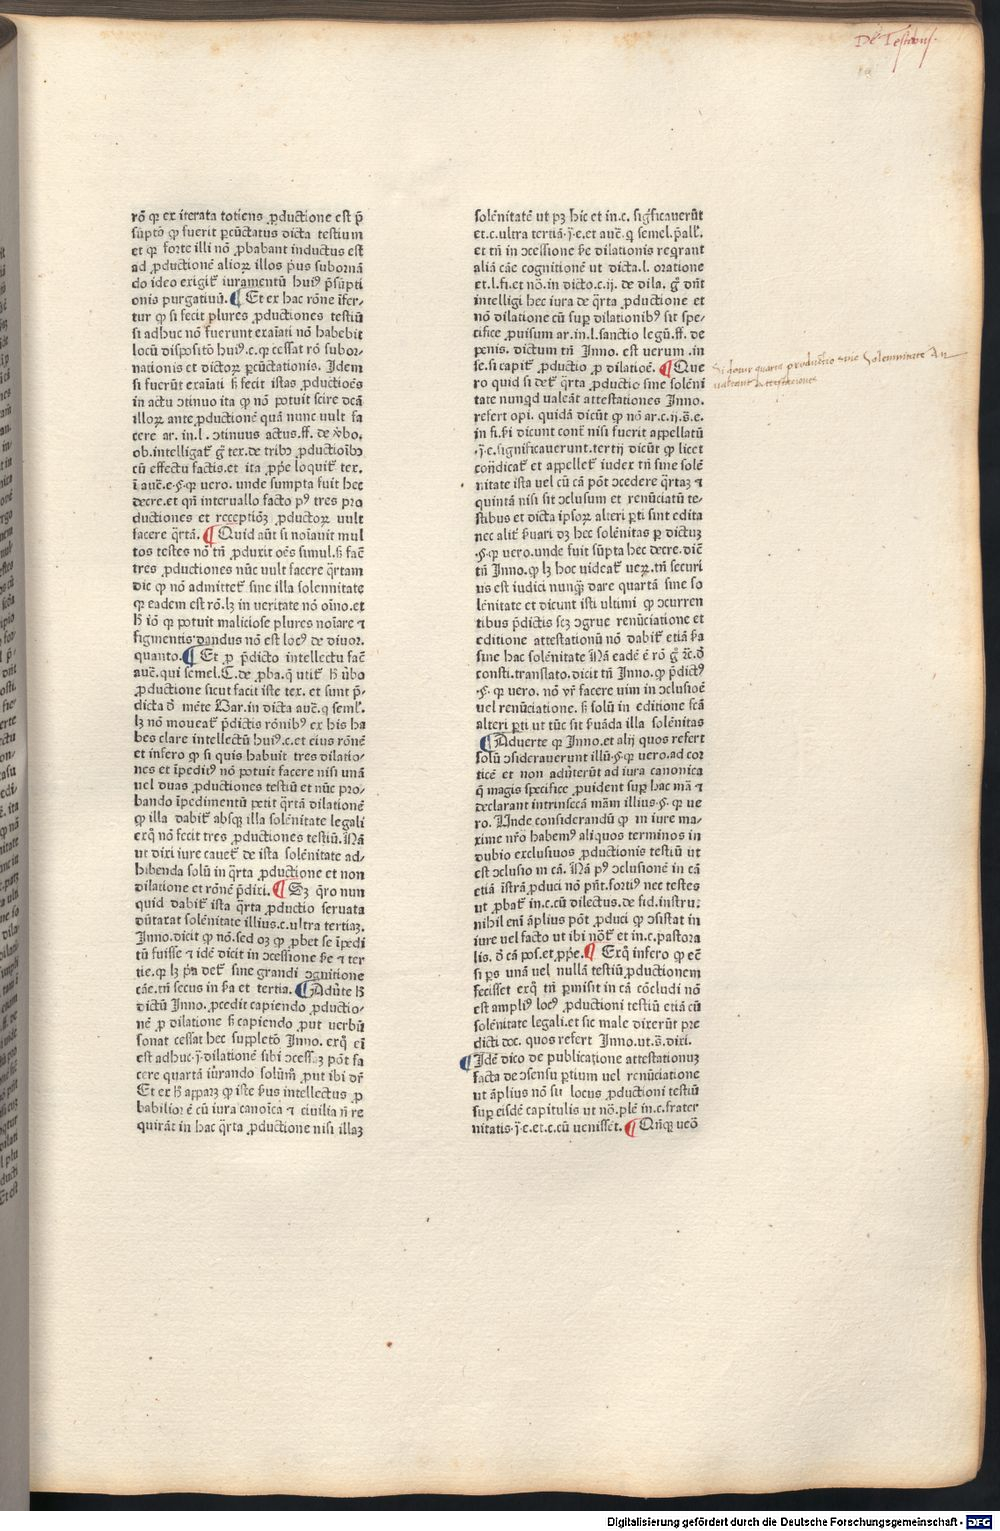 De Testibus.
rõ ꝙ ex iterata totiens ꝓductione est p̃
sũpto ꝙ fuerit ꝑcũctatus dicta testium
et ꝙ forte illi nõ ꝓbabant inductus est
ad ꝓductionẽ alioꝝ illos pꝰus subornã
do ideo exigit᷑ iuramentũ huiꝰ p̃sũpti
onis purgatiuũ. ¶ Et ex hac rõne ĩfer⸗
tur ꝙ si fecit plures ꝓductiones testiũ
si adhuc nõ fuerunt exaĩati nõ habebit
locũ dispositõ huiꝰ.c.ꝙ cessat rõ subor⸗
nationis et dictoꝝ ꝑcũctationis. Idem
si fuerũt exaĩati ſʒ fecit istas ꝓductiõẽs
in actu ɔtinuo ita ꝙ nõ potuit scire dc̃a
illoꝝ ante ꝓductionẽ quã nunc uult fa
cere ar. in.l. ɔtinuus actus.ff. de v̾bo.
ob.intelligat᷑ g̃ tex.de tribꝰ ꝓductiõibꝰ
cũ effectu factis.et ita ꝓpꝛe loquit᷑ tex.
ĩ auc̃.e.§.ꝙ uero. unde sumpta fuit hec
decre.et qñ interuallo facto pꝰ tres pro
ductiones et receptiõʒ ꝓductoꝝ uult
facere q̃rtã. ¶ Quid aũt si noĩauit mul
tos testes nõ tñ ꝓduxit oẽs simul.ſʒ fac̃
tres ꝓductiones nũc uult facere q̃rtam
dic ꝙ nõ admittet᷑ sine illa solennitate
ꝙ eadem est rõ.lʒ in ueritate nõ oĩno.et
ħ iõ ꝙ potuit maliciose plures noĩare ⁊
figmentis dandus nõ est locꝰ de diuor.
quanto. ¶ Et ꝓ p̃dicto intellectu fac̃
auc̃.qui semel.C.de ꝓba.q̃ utit᷑ ħ ũbo
ꝓductione sicut facit iste tex. et sunt p̃⸗
dicta ð mẽte Bar.in dicta auc̃.q semł.
lʒ nõ moueat᷑ p̃dictis rõnibꝰ ex his ha
bes clare intellectũ huiꝰ.c.et eius rõnẽ
et infero ꝙ si quis habuit tres dilatio⸗
nes et ĩpeditꝰ nõ potuit facere nisi unã
uel duas ꝓductiones testiũ et nũc pro⸗
bando ĩpedimentũ petit q̃rtã dilationẽ
ꝙ illa dabit᷑ absqʒ illa solẽnitate legali
exq̃ nõ fecit tres ꝓductiones testiũ. Nã
ut dixi iure cauet᷑ de ista solẽnitate ad⸗
hibenda solũ in q̃rta ꝓductione et non
dilatione et rõnẽ p̃dixi. ¶ Sʒ q̃ro nun
quid dabit᷑ ista q̃rta ꝓductio seruata
dũtaxat solẽnitate illius.c.ultra tertiaʒ.
Inno.dicit ꝙ nõ.sed oʒ ꝙ ꝓbet se ĩpedi
tũ fuisse ⁊ idẽ dicit in ɔcessione ẜe ⁊ ter
tie.ꝙ lʒ p̃a det᷑ sine grandi ɔgnitione
cãe.tñ secus in ẜa et tertia. ¶ Adũte ħ
dictũ Inno. ꝓcedit capiendo ꝓductio⸗
nẽ ꝓ dilatione ſʒ capiendo ꝓut uerbũ
sonat cessat hec suppletõ Inno. exq̃ eĩ
est adhuc.ĩ.dilationẽ sibi ɔcessaʒ põt fa
cere quartã iũrando solũm̃ ꝓut ibi dr̃
Et ex ħ apparʒ ꝙ iste ẜus intellectus ꝓ
babilior ẽ cũ iura canoĩca ⁊ ciuilia ñ re
quirãt in hac q̃rta ꝓductione nisi illaʒ
solẽnitatẽ ut pʒ hic et in.c. sigñficauerũt
et.c.ultra tertiã.ĩ.e.et auc̃.q semel.p̃all᷑.
et tñ in ɔcessione ẜe dilationis reqrant
aliã cãe cognitionẽ ut dicta.l. oratione
et.l.fi.et nõ.in dicto.c.ij. de dila. g̃ dñt
intelligi hec iura de q̃rta ꝓductione et
nõ dilatione cũ suꝑ dilationibꝰ sit spe⸗
cifice ꝓuisum ar.in.l.sanctio legũ.ff. de
penis. dictum tñ Inno. est uerum .in
se.si capit᷑ ꝓductio ꝓ dilatiõẽ. ¶ Que
ro quid si det᷑ q̃rta ꝓductio sine solẽni
tate nunqd ualeãt attestationes Inno.
refert opi. quidã dicũt ꝙ nõ ar.c.ij.s̃.e.
in fi.ẜi dicunt cont᷑ nisi fuerit appellatũ
.ĩ.e.significauerunt.tertij dicũt ꝙ licet
coñdicat᷑ et appellet᷑ iudex tñ sine solẽ
nitate ista uel cũ cã põt ɔcedere q̃rtaʒ ⁊
quintã nisi sit ɔclusum et renũciatũ te⸗
stibus et dicta ipsoꝝ alteri ꝑti sint edita
nec alit᷑ ẜuari dʒ hec solẽnitas ꝑ dictuʒ
.§.ꝙ uero.unde fuit sũpta hec decre.dic̃
tñ Inno.ꝙ lʒ hoc uideat᷑ ueꝝ.tñ securi
us est iudici nunqʒ dare quartã sine so
lẽnitate et dicunt isti ultimi ꝙ ɔcurren
tibus p̃dictis scʒ ɔgrue renũciatione et
editione attestationũ nõ dabit᷑ etiã ẜa
sine hac solẽnitate Nã eadẽ ẽ rõ g̃ ꝛc̃.ð
consti.translato.dicit tñ Inno.ꝙ p̃dictꝰ
.§. ꝙ uero. nõ vr̃ facere uim in ɔclusiõẽ
uel renũciatione. ſʒ solũ in editione fcã
alteri ꝑti ut tũc sit ẜuãda illa solẽnitas
¶ Aduerte ꝙ Inno.et alij quos refert
solũ ɔsiderauerunt illũ.§.ꝙ uero.ad cor
ticẽ et non adũterũt ad iura canonica
q̃ magis specifice ꝓuident suꝑ hac mã ⁊
declarant intrinsecã mãm illius.§. ꝙ ue
ro. Unde considerandũ ꝙ in iure ma⸗
xime nr̃o habemꝰ aliquos terminos in
dubio exclusiuos ꝓductionis testiũ ut
est ɔclusio in cã. Nã pꝰ ɔclusionẽ in cã
etiã ĩstrã ꝓduci nõ pñt.fortiꝰ nec testes
ut ꝓbat᷑ in.c.cũ dilectus.de fid.instru.
nihil enĩ ãplius põt ꝓduci ꝙ ɔsistat in
iure uel facto ut ibi nõt᷑ et in.c.pastora
lis. ð cã pos.et ꝓpꝛe. ¶ Exq̃ infero ꝙ ec̃
si ꝑs unã uel nullã testiũ ꝓductionem
fecisset exq̃ tñ ꝑmisit in cã cõcludi nõ
est ampliꝰ locꝰ ꝓductioni testiũ etiã cũ
solẽnitate legali.et sic male dixerũt pre
dicti doc. quos refert Inno.ut.s̃.dixi.
¶ Idẽ dico de publicatione attestationuʒ
facta de ɔsensu ꝑtium uel renũciatione
ut ãplius nõ sit locus ꝓductioni testiũ
suꝑ eisdẽ capitulis ut nõ.plẽ in.c.frater
nitatis.ĩ.e.et.c.cũ uenissẽt. ¶ Qñqʒ ueõ
Si detur quarta productio sine solemnitate An
valeant attestationes
Digitalisierung gefördert durch die Deutsche Forschungsgemeinschaft - DFG